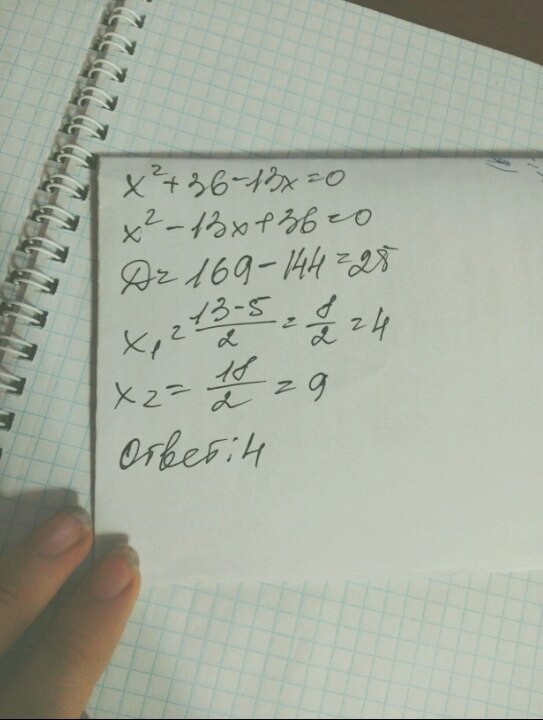 x² + 36 - 13x = 0
x² - 13x + 36 = 0
D = 169 - 144 = 25
x₁ = 13-5/2 = 8/2 = 4
x₂ = 18/2 = 9
Ответ: 4